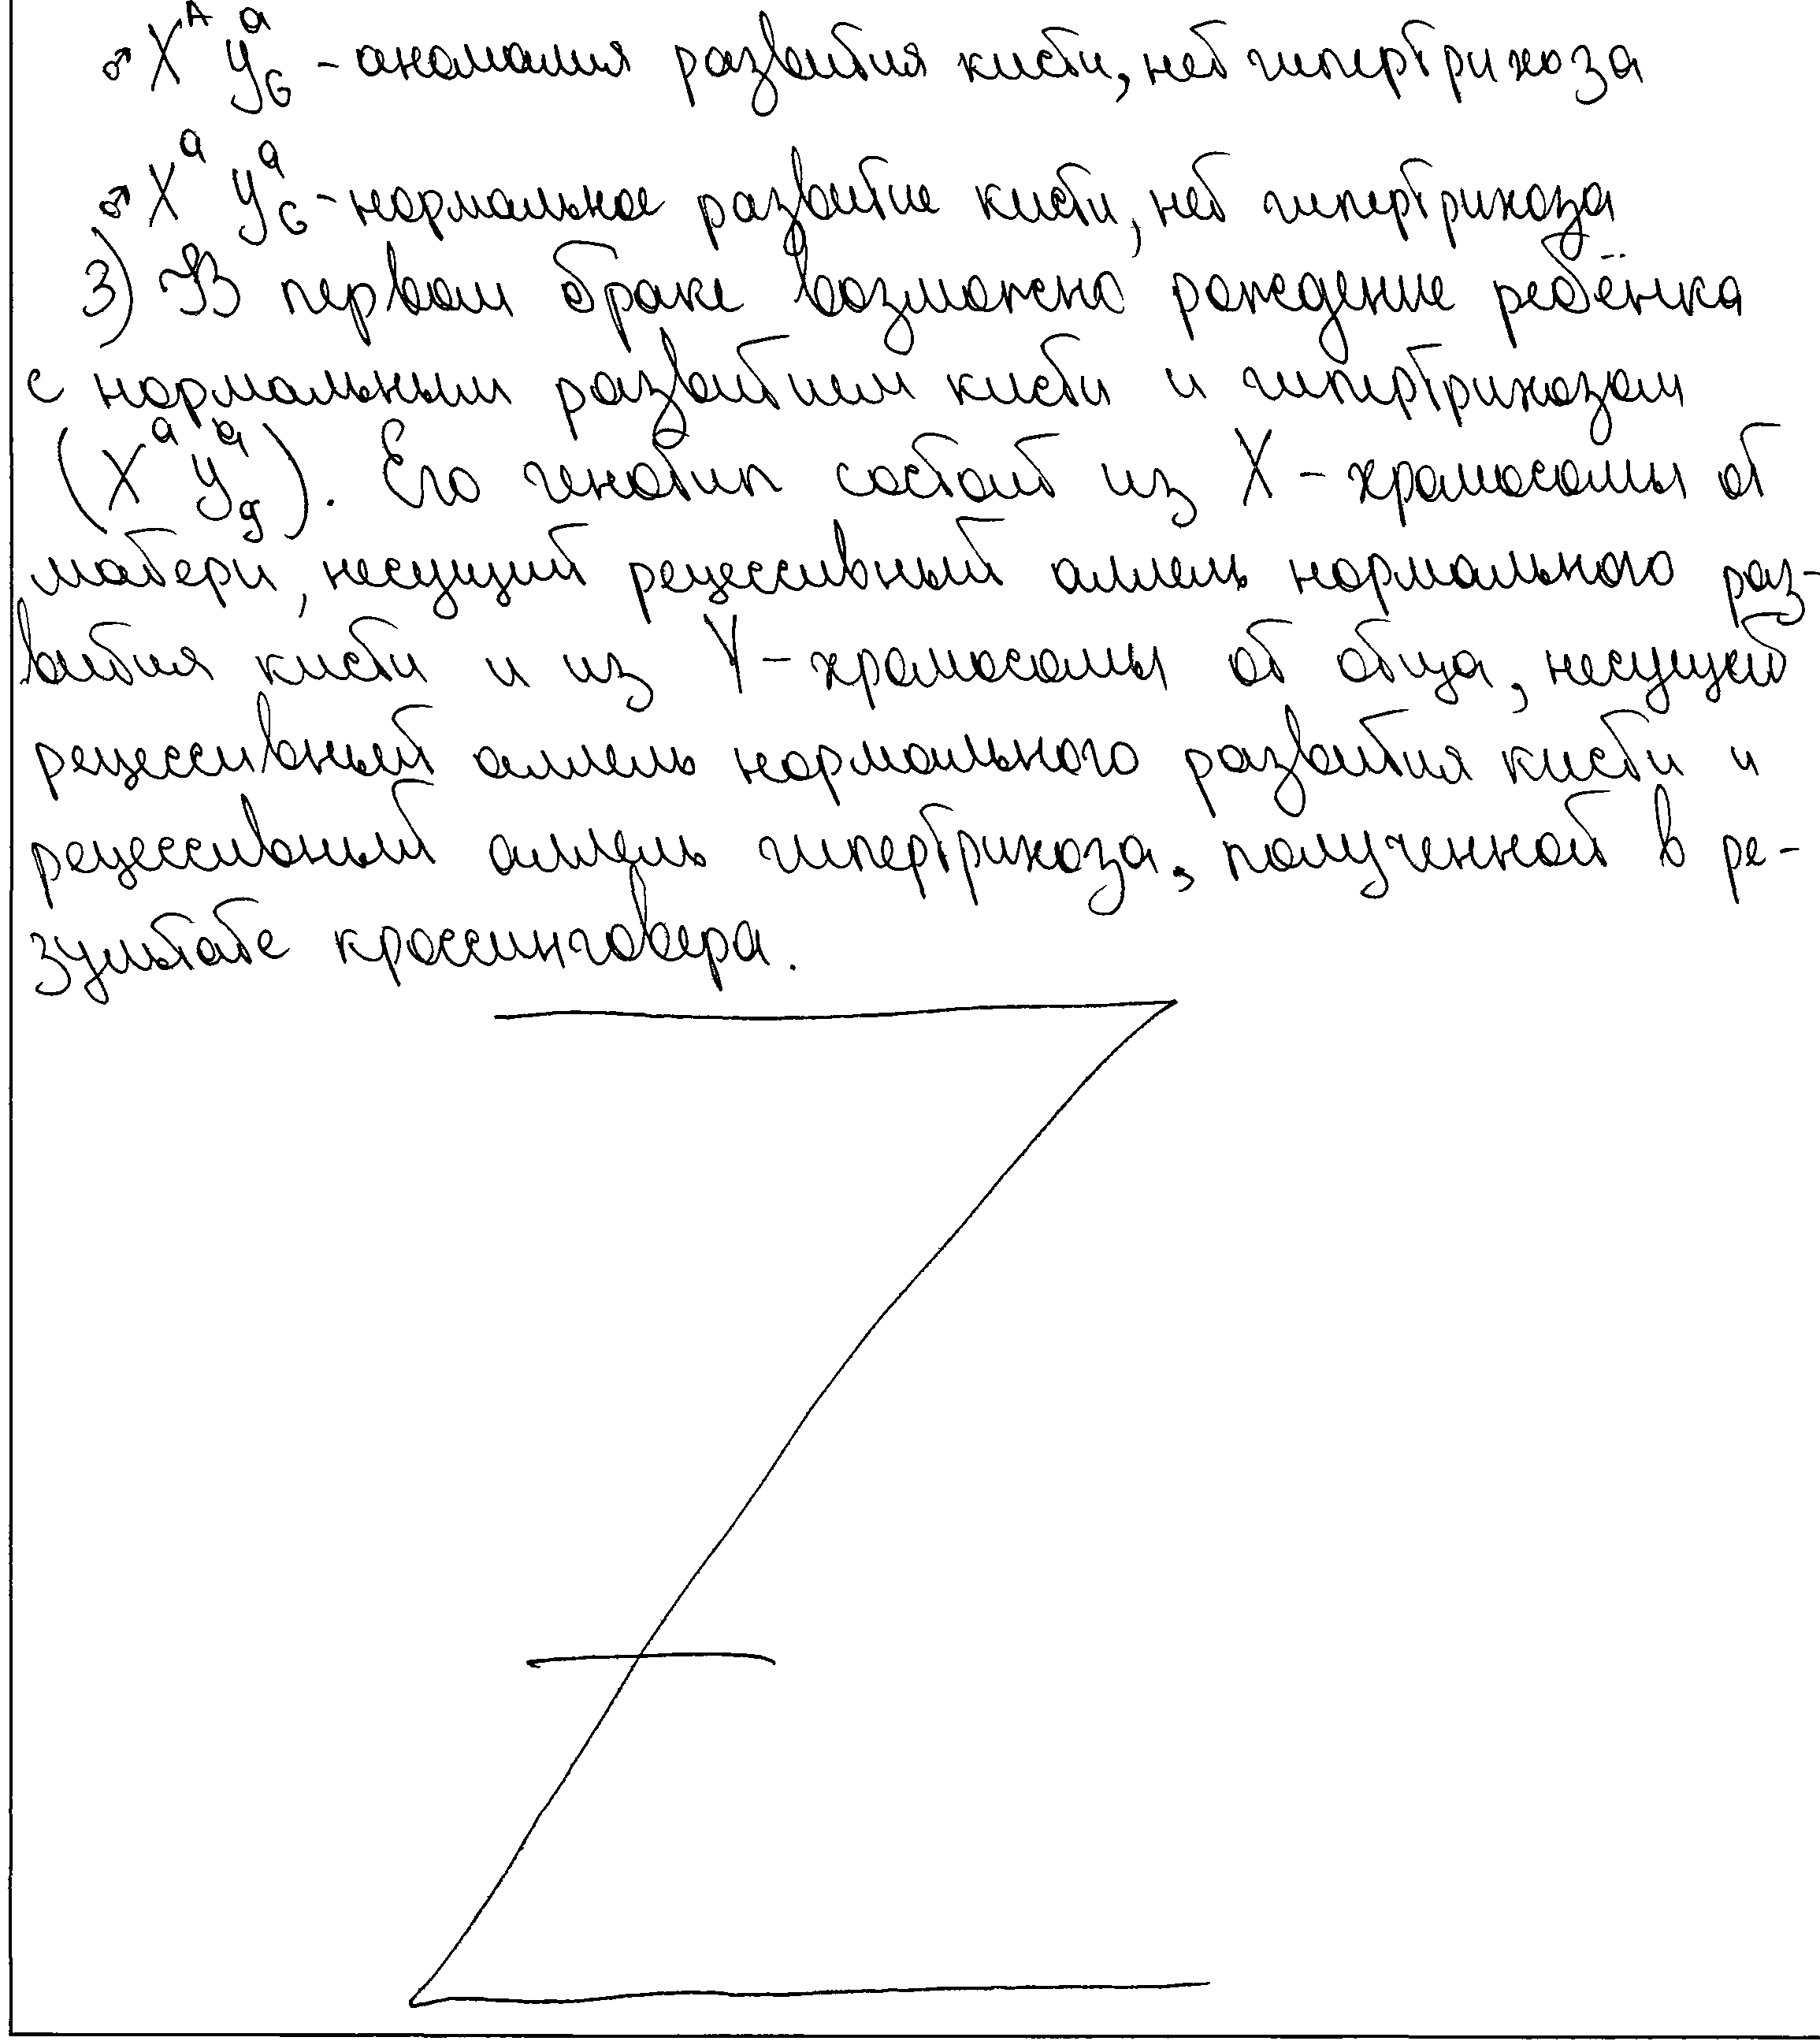 ♂ X^A Y^a_G - аномалия развития кисти, нет гипертрихоза
♂ X^a Y^a_G - нормальное развитие кисти, нет гипертрихоза
3) В первом браке возможно рождение ребёнка
с нормальным развитием кисти и гипертрихозом
(X^a Y^a_g). Его генотип состоит из X-хромосомы от
матери, несущий рецессивный аллель нормального раз-
вития кисти и из Y-хромосомы от отца, несущей
рецессивный аллель нормального развития кисти и
рецессивный аллель гипертрихоза, полученной в ре-
зультате кроссинговера.